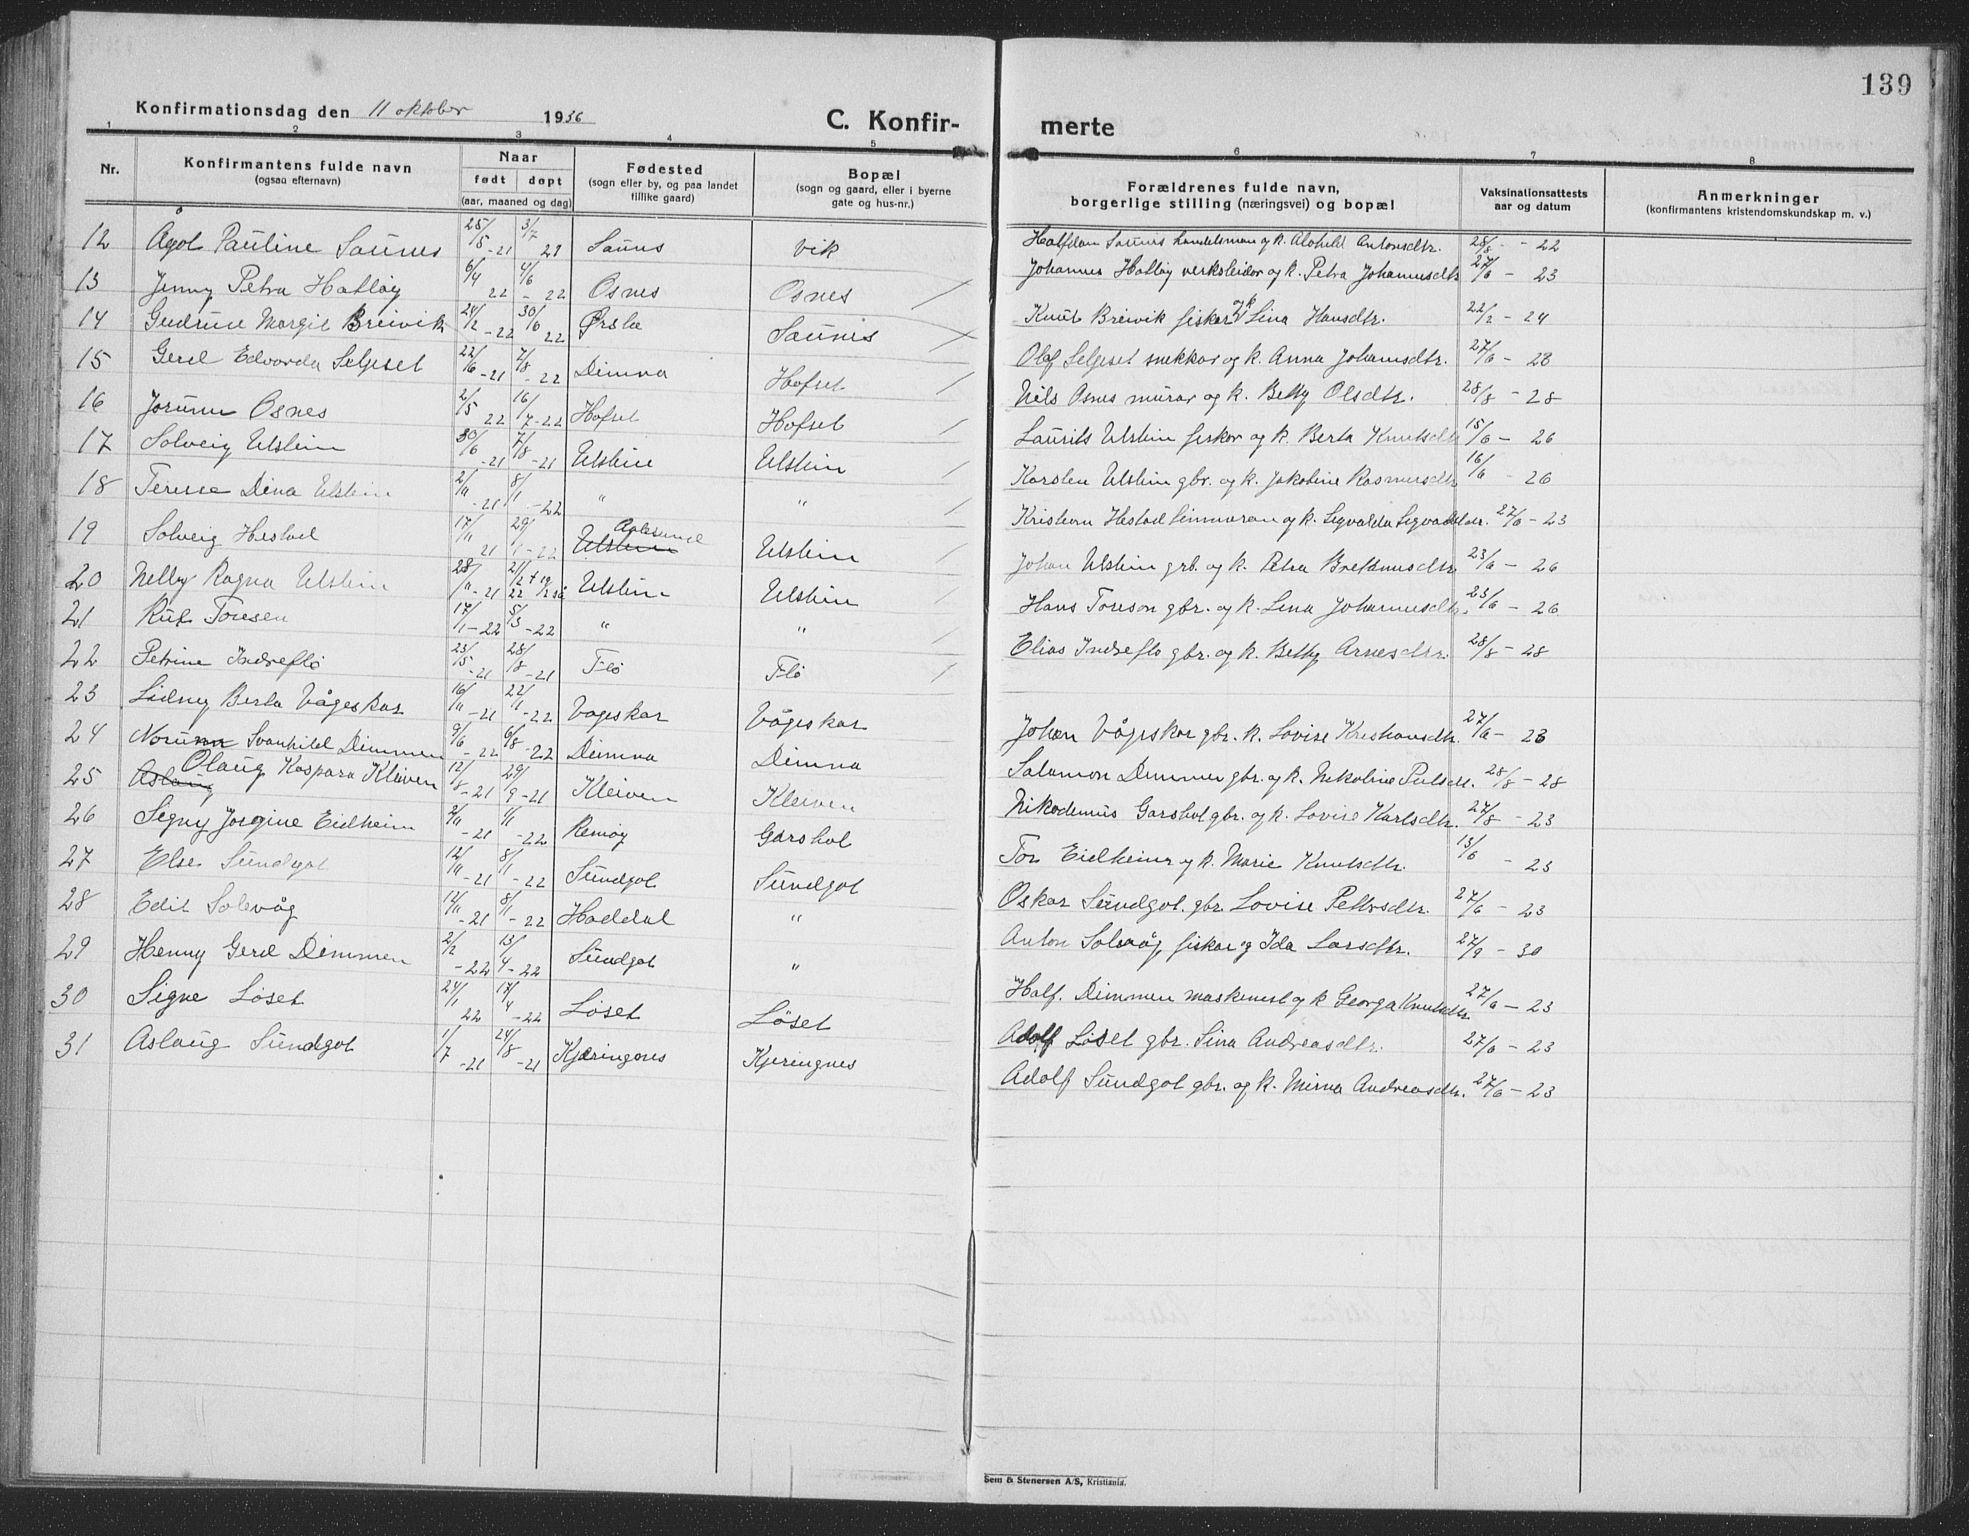 139
Konfirmationsdag den 11 oktober 1936
C. Konfir- merte
1 2 3 4 5 6 7 8
Nr. | Konfirmantens fulde navn (ogsaa efternavn) | Naar født døpt (aar, maaned og dag) | Fødested (sogn eller by, og paa landet tillike gaard) | Bopæl (sogn og gaard, eller i byerne gate og hus-nr.) | Forældrenes fulde navn, borgerlige stilling (næringsvei) og bopæl | Vaksinationsattests aar og datum | Anmerkninger (konfirmantens kristendomskundskap m. v.)
12 Ågot Pauline Saunes 25/5-21 3/7 21 Sauns Vik Halfdan Saunes handelsman og k. Alvhild Antonsdtr. 28/8 - 22
13 Jenny Petra Hatløy 6/4 22 4/6 - 22 Osnes Osnes / Johannes Hatløy verksleidar og k. Petra Johannesdtr 27/6 - 23
14 Gudrun Margit Breivik 24/2-22 30/6 22 Ørsta Saunes Knut Breivik fiskar og k Lina Hansdtr. 22/2 - 24
15 Gerd Edvarda Seljeset 22/6-21 7/8 - 22 Dimna Hofset / Olaf Seljeset snekkar og k. Anna Johansdtr. 27/6 - 23
16 Jorunn Osnes 2/5 22 16/7-22 Hofset Hofset / Nils Osnes murar og k. Betty Olsdtr. 28/8 - 28
17 Solveig Ulstein 30/6-21 7/8-21 Ulstein Ulstein / Laurits Ulstein fiskar og k. Berta Knutsdtr 15/6 - 26
18 Terese Dina Ulstein 2/11-21 8/1-22 " " / Karsten Ulstein gbr. og k. Jakobine Rasmusdtr 16/6 - 26
19 Solveig Hestad 17/11 21 29/1-22 Ulstein Aalesund Ulstein / Kristian Hestad Simmeran og k. Sigvalda Sigvaldsdtr. 27/6-23
20 Nelly Ragna Ulstein 28/11-21 Ulstein Ulstein / Johan Ulstein grb. og k. Petra 23/6 - 26
21 Rut Toresen 17/1-22 5/3-22 " " / Hans Toreson gbr. og k. Lina Johannesdtr. 23/6 - 26
22 Petrine Indreflø 23/5-21 28/8-21 Flø Flø / Elias Indreflo gbr. og k. Betty Arnesdtr. 28/8-28
23 Lidney Berta Vågeskar 16/11-21 22/1-22 Vågeskar Vågeskar Johan Vågeskar gbr. k. Lovise Kristiansdtr. 27/6- 23
24 Norunn Svanhild Dimmen 9/6-22 6/8-22 Dimna Dimna Salamon Dimmen gbr. og k. Nikoline Pulsdtr. 28/8-28
25 Aslaug Olaug Kaspara Kleiven 12/8-21 29/9-21 Kleiven Kleiven Nikodemus Garshol gbr. og k. Lovise Karlsdtr. 27/8 - 23
26 Signy Jorgine Eidheim 2/11-21 1/11-22 Remøy Garshol Tor Eidheim og k. Marie Knutsdtr. 13/6 - 23
27 Else Sundgot 12/11-21 8/1-22 Sundgot Sundgot Oskar Sundgot. gbr Lovise Pettersdtr. 27/6 - 23
28 Edit Solevåg 14/11-21 8/1-22 Haddal " Anton Solevåg, fiskar og Ida Larsdtr. 27/9 - 30
29 Henny Gerd Dimmen 2/2-22 13/4-22 Sundgot " Half. Dimmen maskinist og k Georga Knutsdtr. 27/6 - 23
30 Signe Løset 24/1 22 17/4-22 Løset Løset Adolf Løset gbr. Sina Andreasdtr. 27/6 - 23
31 Aslaug Sundgot 1/7-21 24/8-21 Kjeringnes Kjeringnes Adolf Sundgot gbr. og k. Mirna Andreasdtr. 27/6 - 23
Sem & Stenersen A/S, Kristiania.